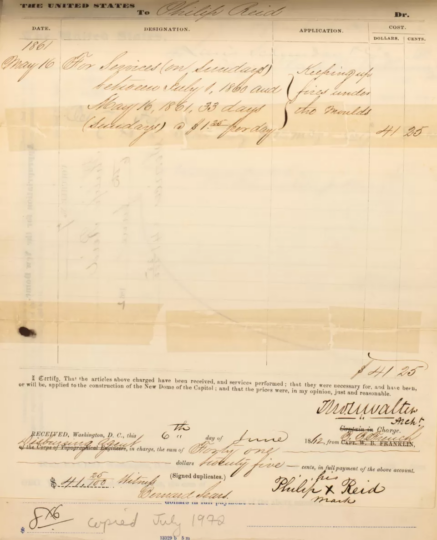 THE UNITED STATES To Philip Reid Dr.
DATE. DESIGNATION. APPLICATION. COST.
DOLLARS. CENTS.
1861
May 16 For Services (on Sundays) Keeping up
between July 1, 1860 and fires under
May 16, 1861, 33 days the moulds
(Sundays) @ $1.25 per day 41 25
$41 25
I Certify, That the articles above charged have been received, and services performed; that they were necessary for, and have been,
or will be, applied to the construction of the New Dome of the Capitol; and that the prices were, in my opinion, just and reasonable.
Tho. U. Walter
Archt
Captain in Charge.
RECEIVED, Washington, D. C., this 6th day of June 1862, from CAPT. W. B. FRANKLIN,
of the Corps of Topographical Engineers, in charge, the sum of Forty one
dollars twenty five cents, in full payment of the above account.
$41.25/100 (Signed duplicates.)
Witness his
Philip X Reid
mark
8x6 copied July 1972